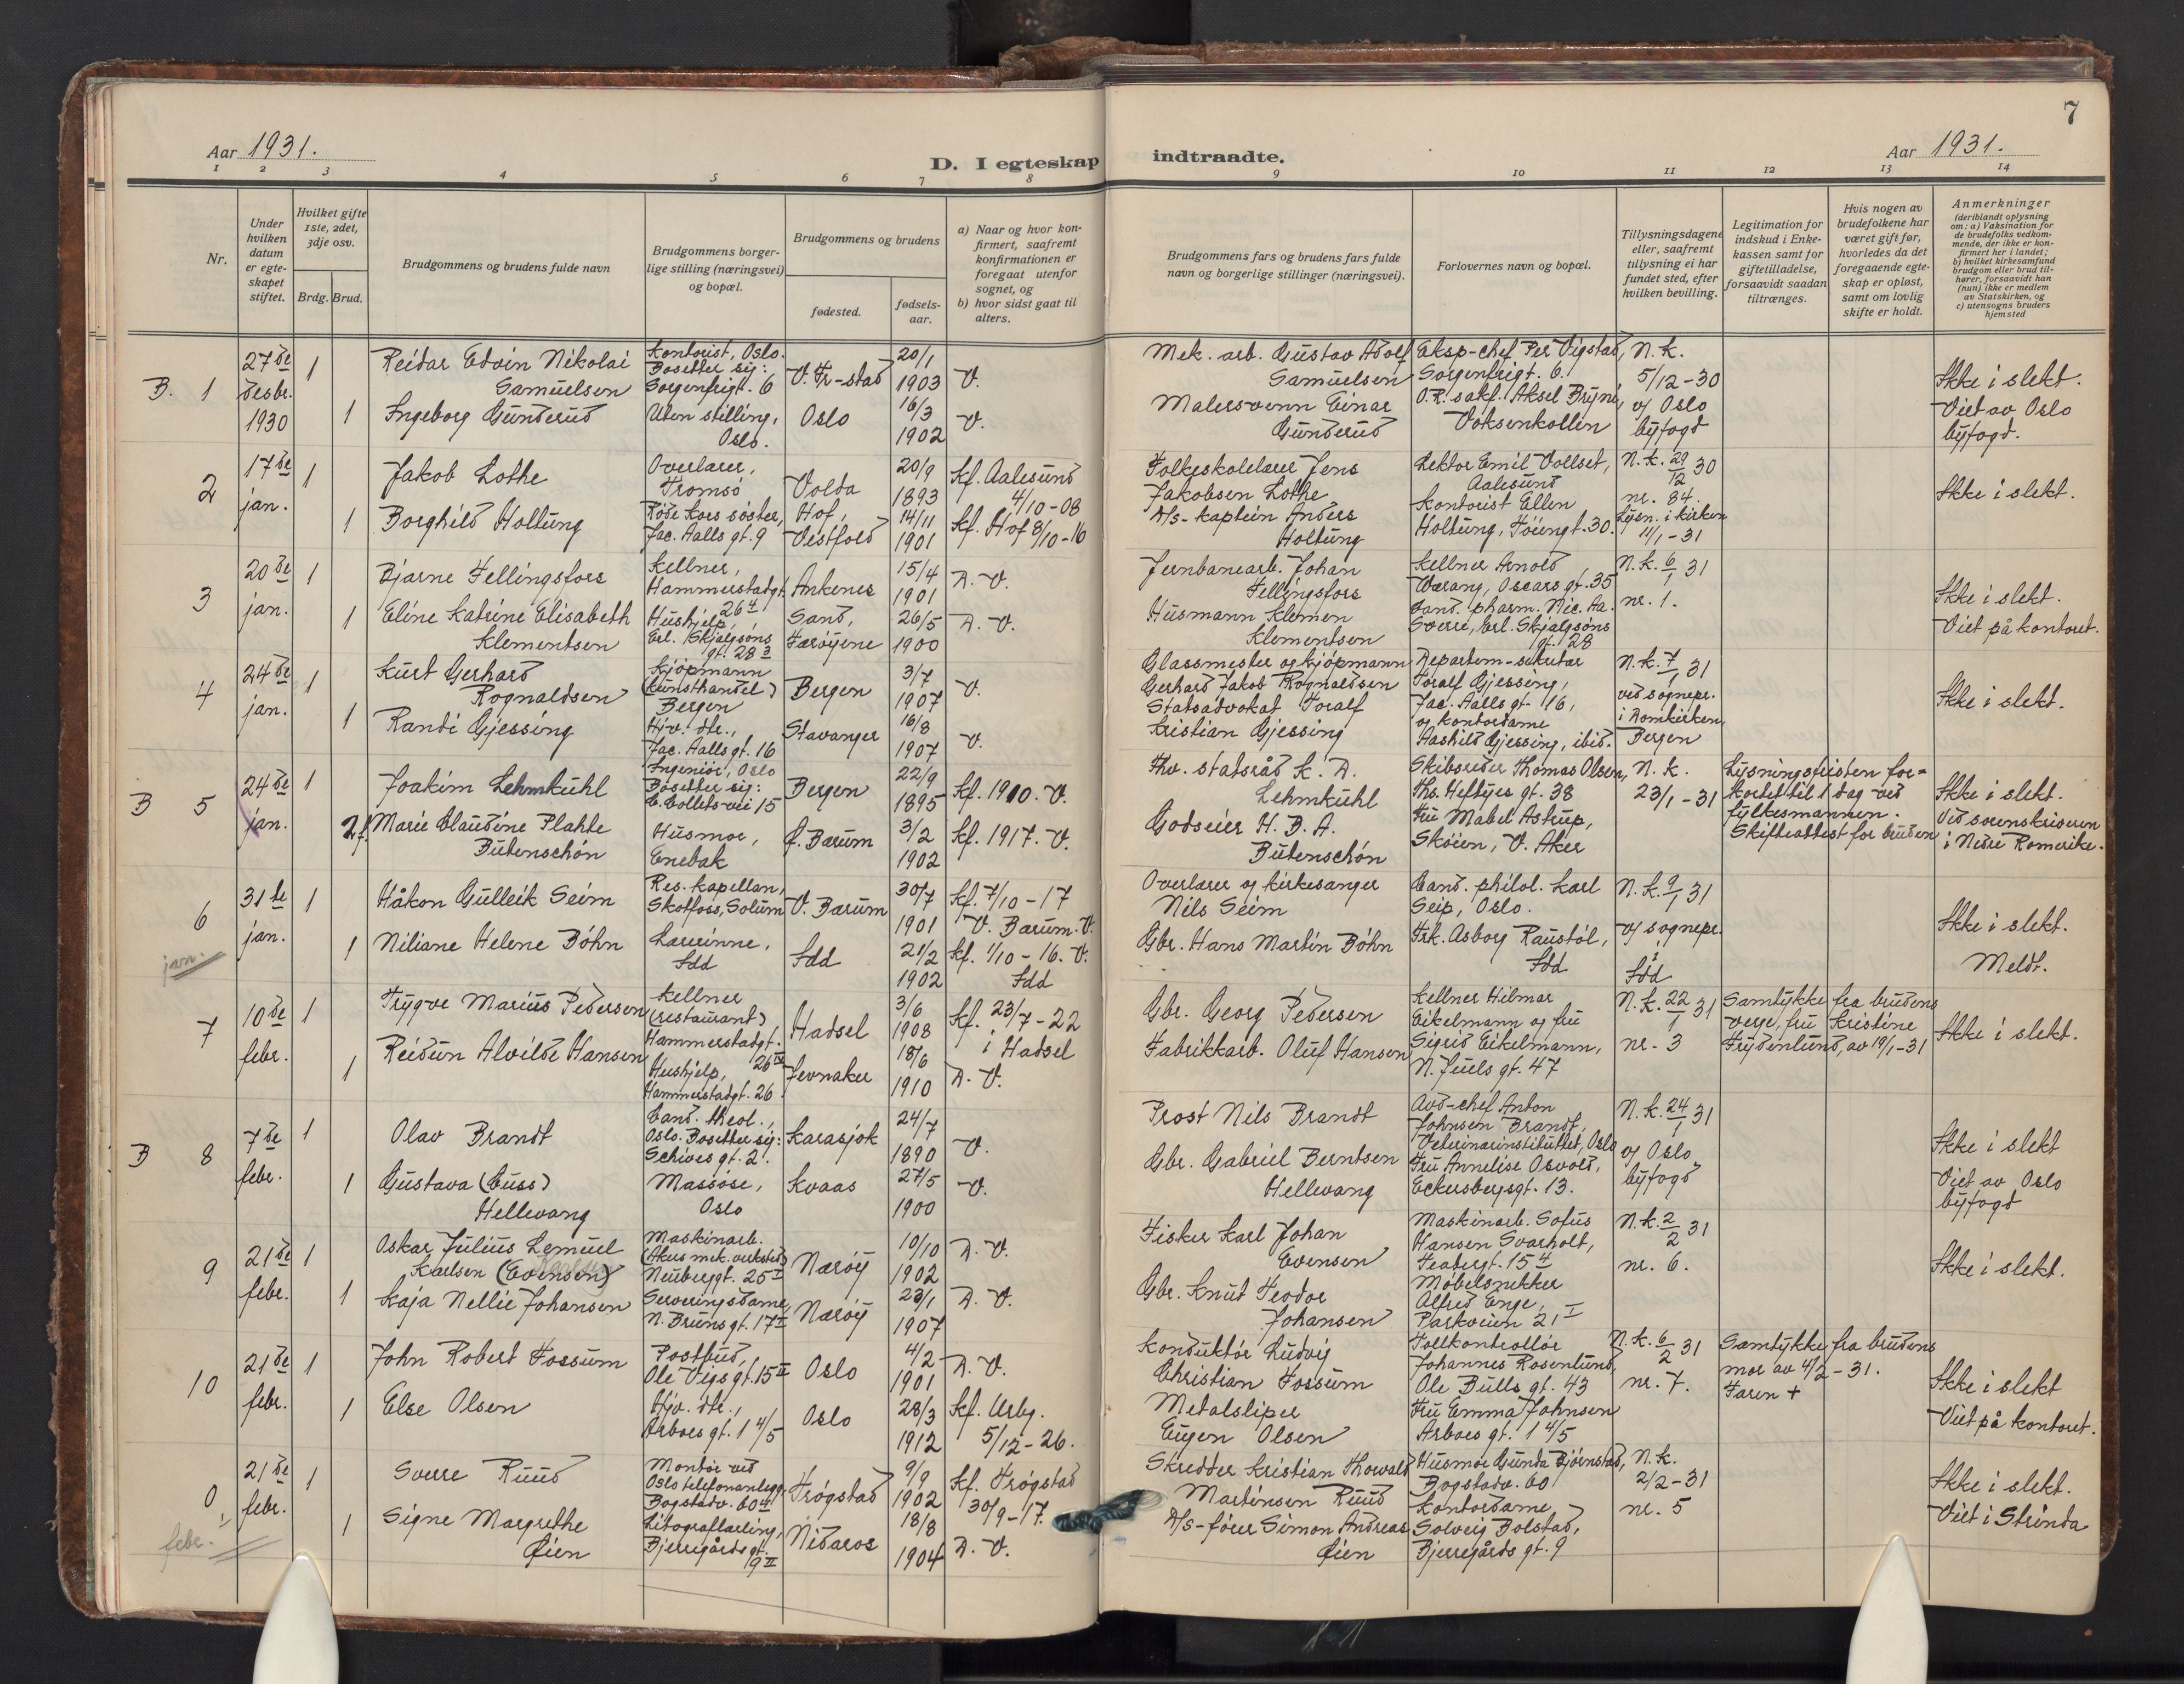 7
Aar 1931.
D. I egteskap indtraadte.
Aar 1931.
1 2 3 4 5 6 7 8 9 10 11 12 13 14
Nr.
Under hvilken datum er egteskapet stiftet.
Hvilket gifte 1ste, 2det, 3dje osv.
Brdg. Brud.
Brudgommens og brudens fulde navn
Brudgommens borger-
lige stilling (næringsvei)
og bopæl.
Brudgommens og brudens
fødested.
fødsels-
aar.
a) Naar og hvor kon-
firmert, saafremt
konfirmationen er
foregaat utenfor
sognet, og
b) hvor sidst gaat til
alters.
Brudgommens fars og brudens fars fulde
navn og borgerlige stillinger (næringsvei).
Forlovernes navn og bopæl.
Tillysningsdagene
eller, saafremt
tillysning ei har
fundet sted, efter
hvilken bevilling.
Legitimation for
indskud i Enke-
kassen samt for
giftetilladelse,
forsaavidt saadan
tiltrænges.
Hvis nogen av
brudefolkene har
været gift før,
hvorledes da det
foregaaende egte-
skap er opløst,
samt om lovlig
skifte er holdt.
Anmerkninger
(deriblandt oplysning
om: a) Vaksination for
de brudefolks vedkom-
mende, der ikke er kon-
firmert her i landet;
b) hvilket kirkesamfund
brudgom eller brud til-
hører, forsaavidt han
(hun) ikke er medlem
av Statskirken, og
c) utensogns bruders
hjemsted
B. 1
27de
desbr.
1930
1
Reidar Edvin Nikolai
Samuelsen
Kontorist, Oslo.
Bosetter sig:
Sorgenfrigt. 6
V. Fr-stad
20/1
1903
V.
1
Ingeborg Gunderud
Uten stilling,
Oslo.
Oslo
16/3
1902
V.
Mek. arb. Gustav Adolf
Samuelsen
Malersvenn Einar
Gunderud
Eksp-chef Per Vigstad,
Sorgenfrigt. 6.
O.R. sakf. Aksel Bryni,
Voksenkollen
N.k.
5/12-30
v/ Oslo
byfogd
Ikke i slekt.
Viet av Oslo
byfogd.
2
17de
jan.
1
Jakob Lothe
Overlærer,
Tromsø
Volda
20/9
1893
Kf. Aalesund
4/10-08
1
Borghild Holtung
Røde Kors søster,
Jac. Aalls gt. 9
Hof,
Vestfold
14/11
1901
Kf. Hof 8/10-16
Folkeskolelærer Jens
Jakobsen Lothe
D/S-kaptein Anders
Holtung
Lektor Emil Vollset,
Aalesund
Kontorist Ellen
Holtung, Tøiengt. 30.
N.k. 29/12 30
nr. 84.
Lysn. i kirken
11/1-31
Ikke i slekt.
3
20de
jan.
1
Bjarne Fellingsfors
Kellner,
Hammerstadgt.
26 4
Ankenes
15/4
1901
D.V.
1
Eline Katrine Elisabeth
Klementsen
Hushjelp,
Erl. Skjalgsøns
gt. 28 3
Sand,
Færøyene
26/5
1900
D.V.
Jernbanearb. Johan
Fellingsfors
Husmann Klemen
Klementsen
Kellner Arnold
Værang, Oscars gt. 35
Cand. pharm. Nic. Aa.
Sverre, Erl. Skjalgsøns
gt. 28
N.k. 6/1 31
nr. 1.
Ikke i slekt.
Viet på kontoret.
4
24de
jan.
1
Kurt Gerhard
Rognaldsen
Kjøpmann
(kunsthandel)
Bergen
Bergen
3/7
1907
V.
1
Randi Gjessing
Hjv. dtr.,
Jac. Aalls gt. 16
Stavanger
16/8
1907
V.
Glassmester og kjøpmann
Gerhard Jakob Rognaldsen
Statsadvokat Toralf
Kristian Gjessing
Departem-sekretær
Toralf Gjessing,
Jac. Aalls gt. 16,
og kontordame
Aashild Gjessing, ibid.
N.k. 7/1 31
ved sognepr.
i Domkirken
Bergen
Ikke i slekt.
B 5
24de
jan.
1
Joakim Lehmkuhl
Ingeniør, Oslo
Bosetter sig:
C. Collets vei 15
Bergen
22/9
1895
Kf. 1910. V.
2 f.
Marie Claudine Plahte
Butenschøn
Husmor,
Enebak
Ø. Bærum
3/2
1902
Kf. 1917. V.
Fhv. statsråd K. D.
Lehmkuhl
Godseier H. B. A.
Butenschøn
Skibsreder Thomas Olsen,
Ths. Heftyes gt. 38
Fru Mabel Astrup,
Skøien, V. Aker
N.k.
23/1-31
Lysningsfristen for=
kortet til 1 dag ved
fylkesmannen.
Skifteattest for bruden
Ikke i slekt.
Ved sorenskriveren
i Nedre Romerike.
6
jan.
31te
jan.
1
Håkon Gulleik Seim
Res. kapellan,
Skotfoss, Solum
V. Bærum
30/7
1901
Kf. 7/10-17
V. Bærum. V.
1
Niliane Helene Bøhn
Lærerinne,
Idd
Idd
21/2
1902
Kf. 1/10-16. V.
Idd
Overlærer og kirkesanger
Nils Seim
Gbr. Hans Martin Bøhn
Cand. philol. Karl
Seip, Oslo.
Frk. Asborg Raustøl,
Idd
N.k. 9/1 31
v/ sognepr.
i
Idd
Ikke i slekt.
Meldt.
7
10de
febr.
1
Trygve Marius Pedersen
Kellner
(restaurant)
Hammerstadgt.
26 IV
Hadsel
3/6
1908
Kf. 23/7-22
i Hadsel
1
Reidun Alvilde Hansen
Hushjelp,
Hammerstadgt. 26
Jevnaker
18/6
1910
D.V.
Gbr. Georg Pedersen
Fabrikkarb. Oluf Hansen
Kellner Hilmar
Eikelmann og fru
Sigrid Eikelmann,
N. Juels gt. 47
N.k. 22/1 31
nr. 3
Samtykke fra brudens
verge, fru Kristine
Frydenlund, av 19/1-31
Ikke i slekt.
B 8
7de
febr.
1
Olav Brandt
Cand. theol.,
Oslo. Bosetter sig:
Schives gt. 2.
Karasjok
24/7
1890
V.
1
Gustava (Guss)
Hellevang
Massøse,
Oslo
Kvaas
27/5
1900
V.
Prost Nils Brandt
Gbr. Gabriel Berntsen
Hellevang
Avd-chef Anton
Johnsen Brandt,
Veterinærinstituttet, Oslo
Fru Annelise Osvold,
Eckersbergsgt. 13.
N.k. 24/1 31
v/ Oslo
byfogd
Ikke i slekt
Viet av Oslo
byfogd
9
21de
febr.
1
Oskar Julius Lemuel
Karlsen (Evensen)
Maskinarb.
(Akers mek. verksted)
Neuberggt. 25 I
Nærøy
10/10
1902
D.V.
1
Kaja Nellie Johansen
Serveringsdame,
N. Bruns gt. 17 II
Nærøy
23/1
1907
D.V.
Fisker Karl Johan
Evensen
Gbr. Knut Teodor
Johansen
Maskinarb. Sofus
Hansen Svarholt,
Teatergt. 15 4
Møbelsnekker
Alfred Enge,
Parkveien 21 I
N.k. 2/2 31
nr. 6.
Ikke i slekt.
10
21de
febr.
1
John Robert Fossum
Postbud,
Ole Vigs gt. 15 II
Oslo
4/2
1901
D.V.
1
Else Olsen
Hjv. dtr.,
Arboes gt. 1 4/5
Oslo
28/3
1912
Kf. Urbg.
5/12-26.
Konduktør Ludvig
Christian Fossum
Metalsliper
Eugen Olsen
Tollkontrollør
Johannes Rosenlund,
Ole Bulls gt. 43
Fru Emma Johnsen
Arboes gt. 1 4/5
N.k. 6/2 31
nr. 7.
Samtykke fra brudens
mor av 4/2-31.
Faren +
Ikke i slekt
Viet på kontoret.
0
febr.
21de
febr.
1
Sverre Ruud
Montør ved
Oslo telefonanlegg,
Bogstadv. 60 II
Trøgstad
9/9
1902
Kf. Trøgstad
30/9-17.
1
Signe Margrethe
Øien
Litograflærling,
Bjerregårds gt.
9 II
Nidaros
18/8
1904
D.V.
Skredder Kristian Thorvald
Martinsen Ruud
D/S-fører Simon Andreas
Øien
Husmor Gunda Bjørnstad,
Bogstadv. 60
Kontordame
Solveig Bolstad,
Bjerregårds gt. 9
N.k.
2/2-31
nr. 5
Ikke i slekt.
Viet i Strinda